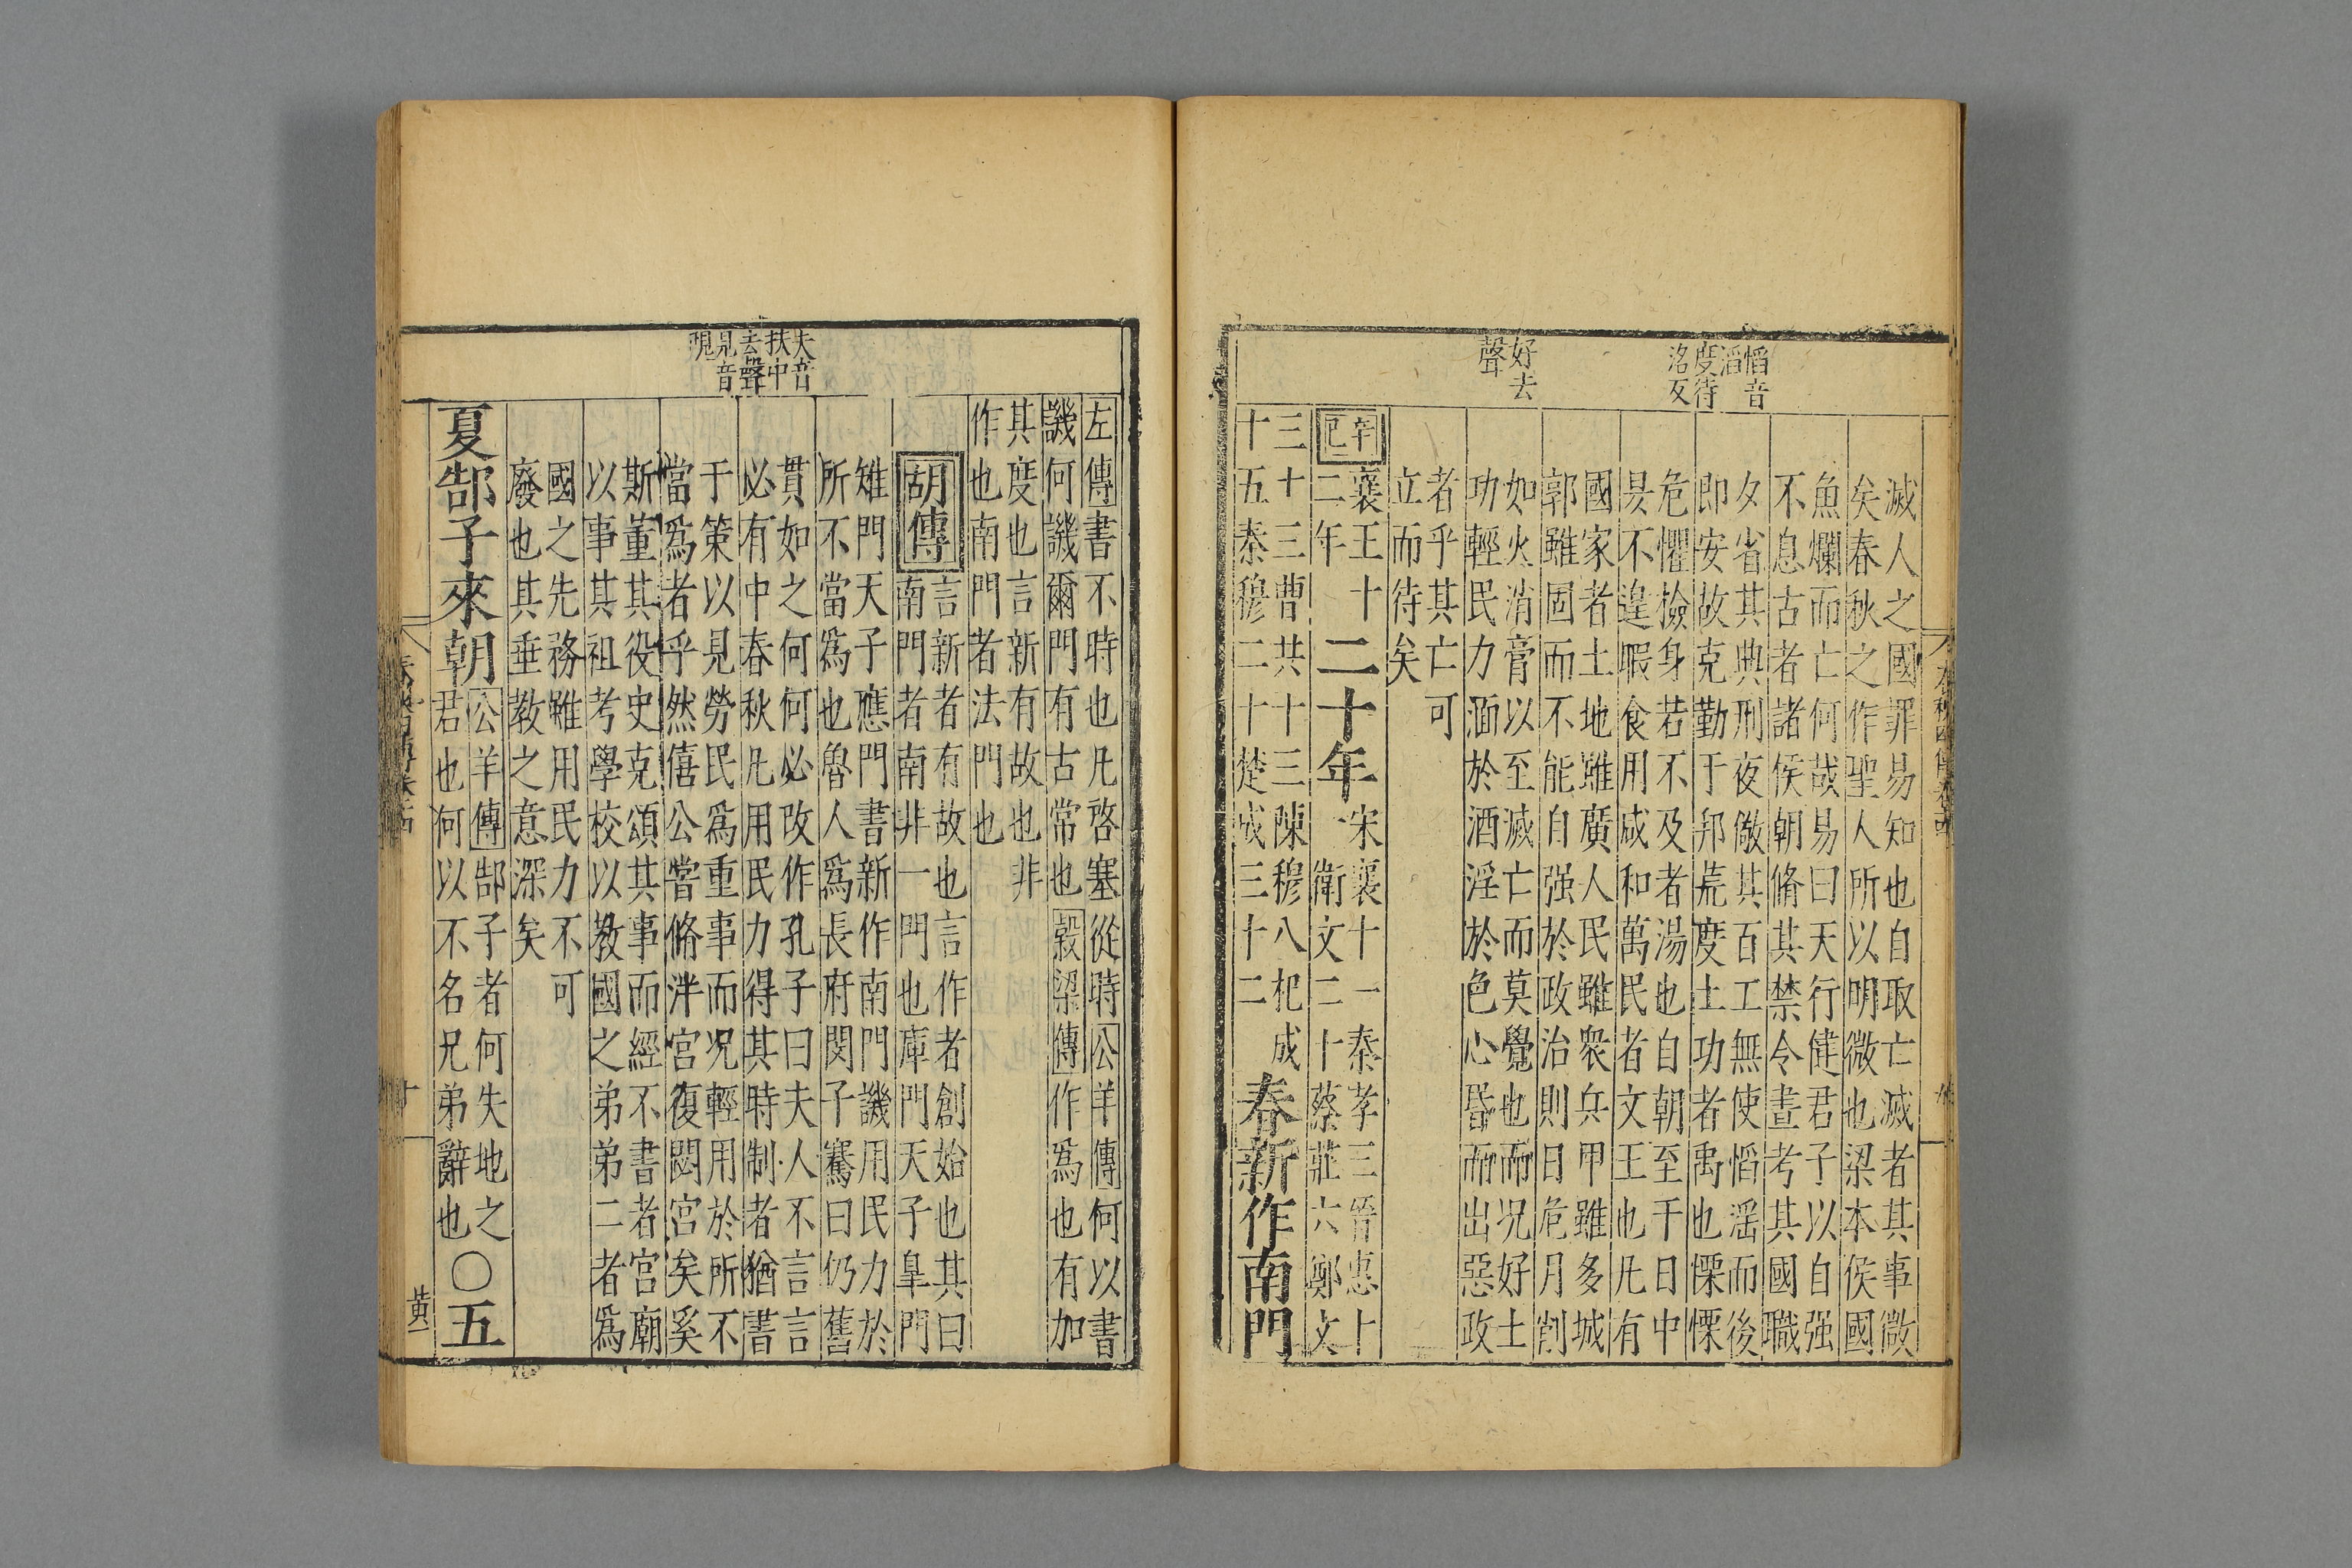 慆音
滔
度待
洛反
好去
聲
滅人之國罪易知也自取亡滅者其事微
矣春秋之作聖人所以明微也梁本侯國
魚爛而亡何哉易曰天行健君子以自强
不息古者諸侯朝脩其禁令晝考其國職
夕省其典刑夜儆其百工無使慆滛而後
即安故克勤于邦荒度土功者禹也慄慄
危懼檢身若不及者湯也自朝至于日中
昃不遑暇食用咸和萬民者文王也凡有
國家者土地雖廣人民雖衆兵甲雖多城
郭雖固而不能自强於政治則日危月削
如火消膏以至滅亡而莫覺也而况好土
功輕民力湎於酒淫於色心昏而出惡政
者乎其亡可
立而待矣
辛巳
襄王十
二年
二十年
宋襄十一秦孝三晉惠十
一衛文二十蔡莊六鄭文
三十三曹共十三陳穆八杞成
十五秦穆二十楚成三十二
春新作南門
夫音
扶中
去聲
見音
現
左傳書不時也凡啓塞從時公羊傳何以書
譏何譏爾門有古常也穀梁傳作爲也有加
其度也言新有故也非
作也南門者法門也
胡傳
言新者有故也言作者創始也其曰
南門者南非一門也庫門天子皐門
雉門天子應門書新作南門譏用民力於
所不當爲也魯人爲長府閔子騫曰仍舊
貫如之何何必改作孔子曰夫人不言言
必有中春秋凡用民力得其時制者猶書
于策以見勞民爲重事而况輕用於所不
當爲者乎然僖公嘗脩泮宫復閟宫矣奚
斯董其役史克頌其事而經不書者宫廟
以事其祖考學校以教國之弟弟二者爲
國之先務雖用民力不可
廢也其垂教之意深矣
夏郜子來朝
公羊傳郜子者何失地之
君也何以不名兄弟辭也
〇五
十
黄